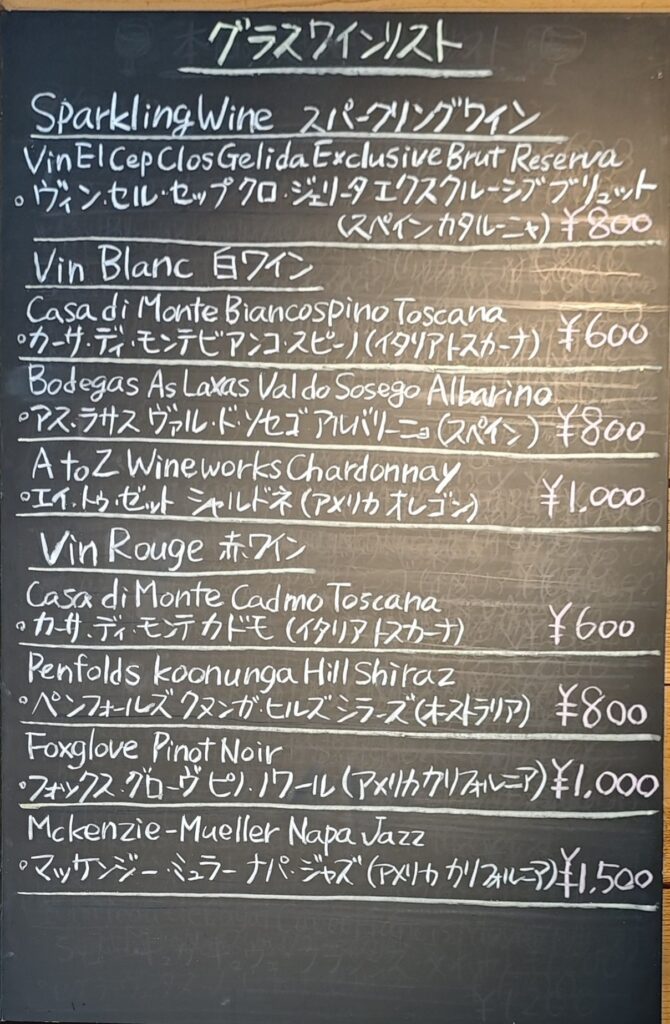 グラスワインリスト
Sparkling Wine スパークリングワイン
Vin El Cep Clos Gelida Exclusive Brut Reserva
。ヴィン・セル・セップ クロ・ジェリータ エクスクルーシブ ブリュット
(スペイン カタルーニャ) ¥800
Vin Blanc 白ワイン
Casa di Monte Biancospino Toscana
。カーサ・ディ・モンテビアンコ・スピーノ(イタリア トスカーナ) ¥600
Bodegas As Laxas Val do Sosego Albarino
。アス・ラサス ヴァル・ド・ソセゴ アルバリーニョ(スペイン) ¥800
A to Z Wineworks Chardonnay
。エイ・トゥ・ゼット シャルドネ(アメリカ オレゴン) ¥1,000
Vin Rouge 赤ワイン
Casa di Monte Cadmo Toscana
。カーサ・ディ・モンテ カドモ (イタリア トスカーナ) ¥600
Penfolds koonunga Hill Shiraz
。ペンフォールズ クヌンガ・ヒルズ シラーズ(オーストラリア) ¥800
Foxglove Pinot Noir
。フォックス・グローヴ ピノ・ノワール(アメリカ カリフォルニア) ¥1,000
Mckenzie-Mueller Napa Jazz
。マッケンジー・ミュラー ナパ・ジャズ(アメリカ カリフォルニア) ¥1,500